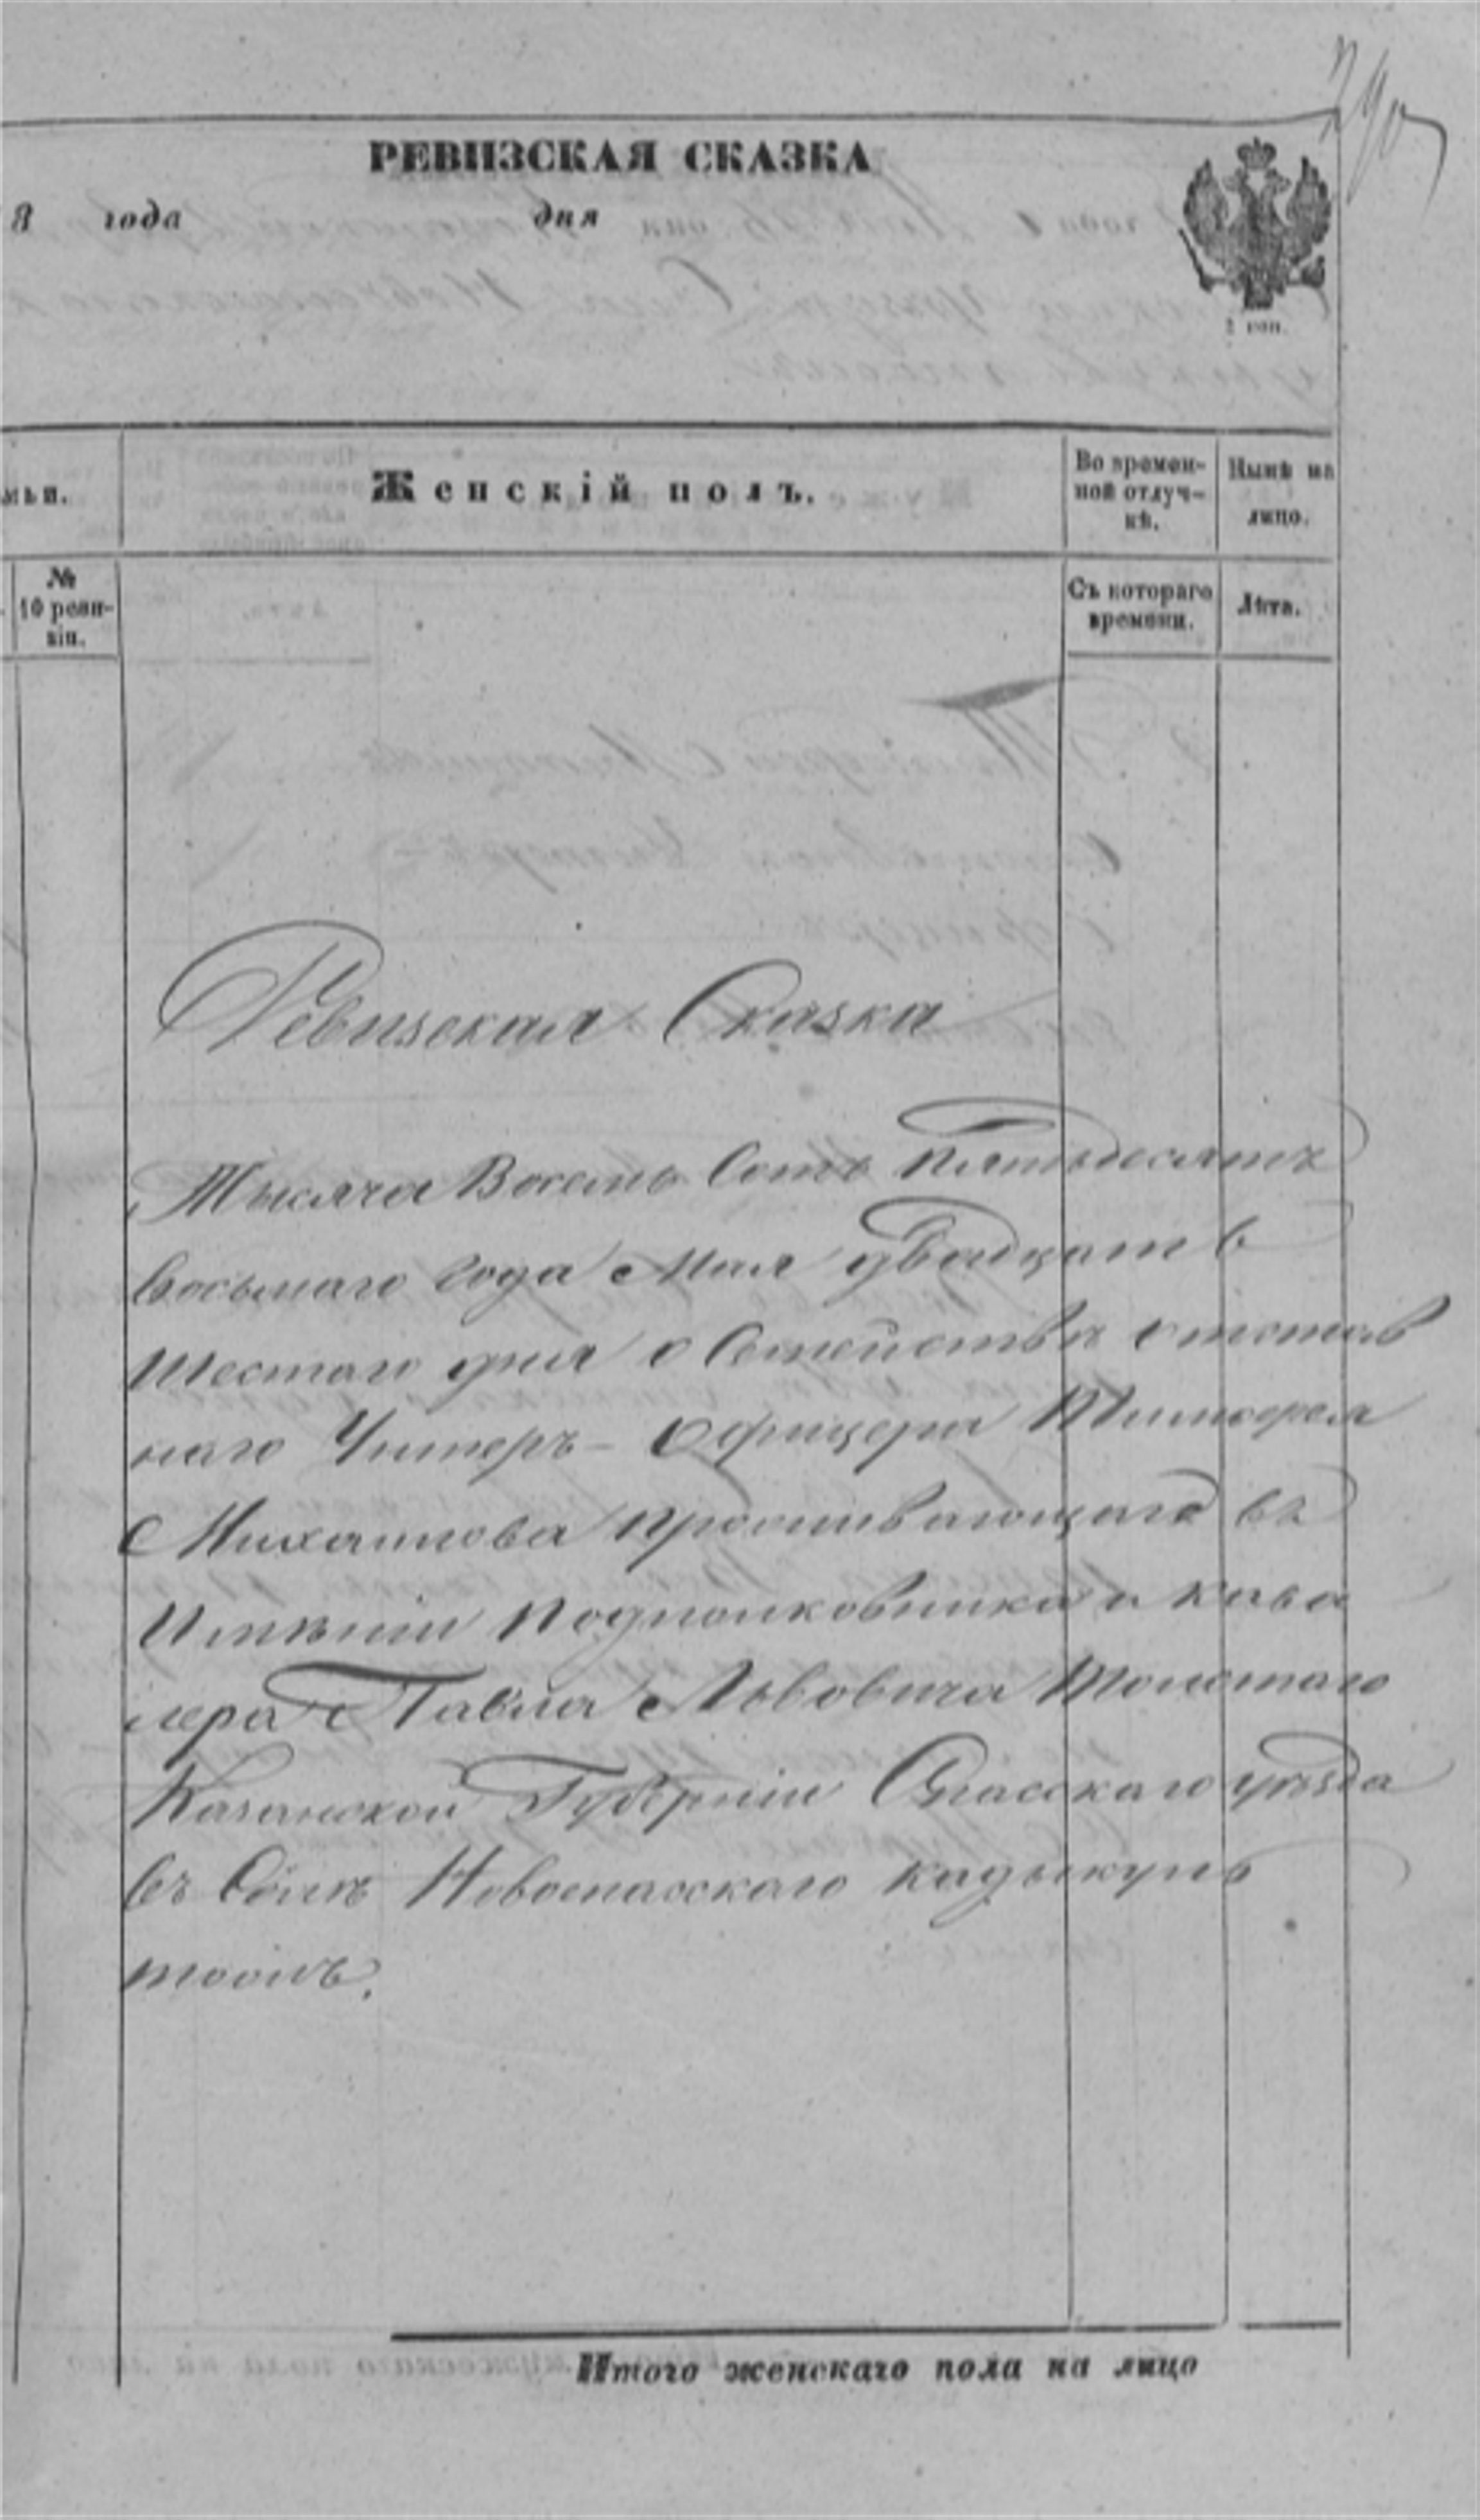 РЕВИЗСКАЯ СКАЗКА
8 года дня
2 коп.
мьи. Женскій полъ. Во времен-
ной отлуч-
кѣ. Нынѣ на
лицо.
№
10 реви-
зіи. Съ котораго
времени. Лѣта.
Ревизская Сказка
Тысяча Восемь Сотъ Пятьдесятъ
восьмаго года Мая двадцать
шестаго дня о Семействѣ отстав
наго Унтеръ-Офицера Тимофея
Михаилова проживающаго въ
Имѣніи Подполковника и кава
лера Павла Львовича Толстаго
Казанской Губерніи Спасскаго уѣзда
въ Селѣ Новоспасскаго
тожъ.
Итого женскаго пола на лицо